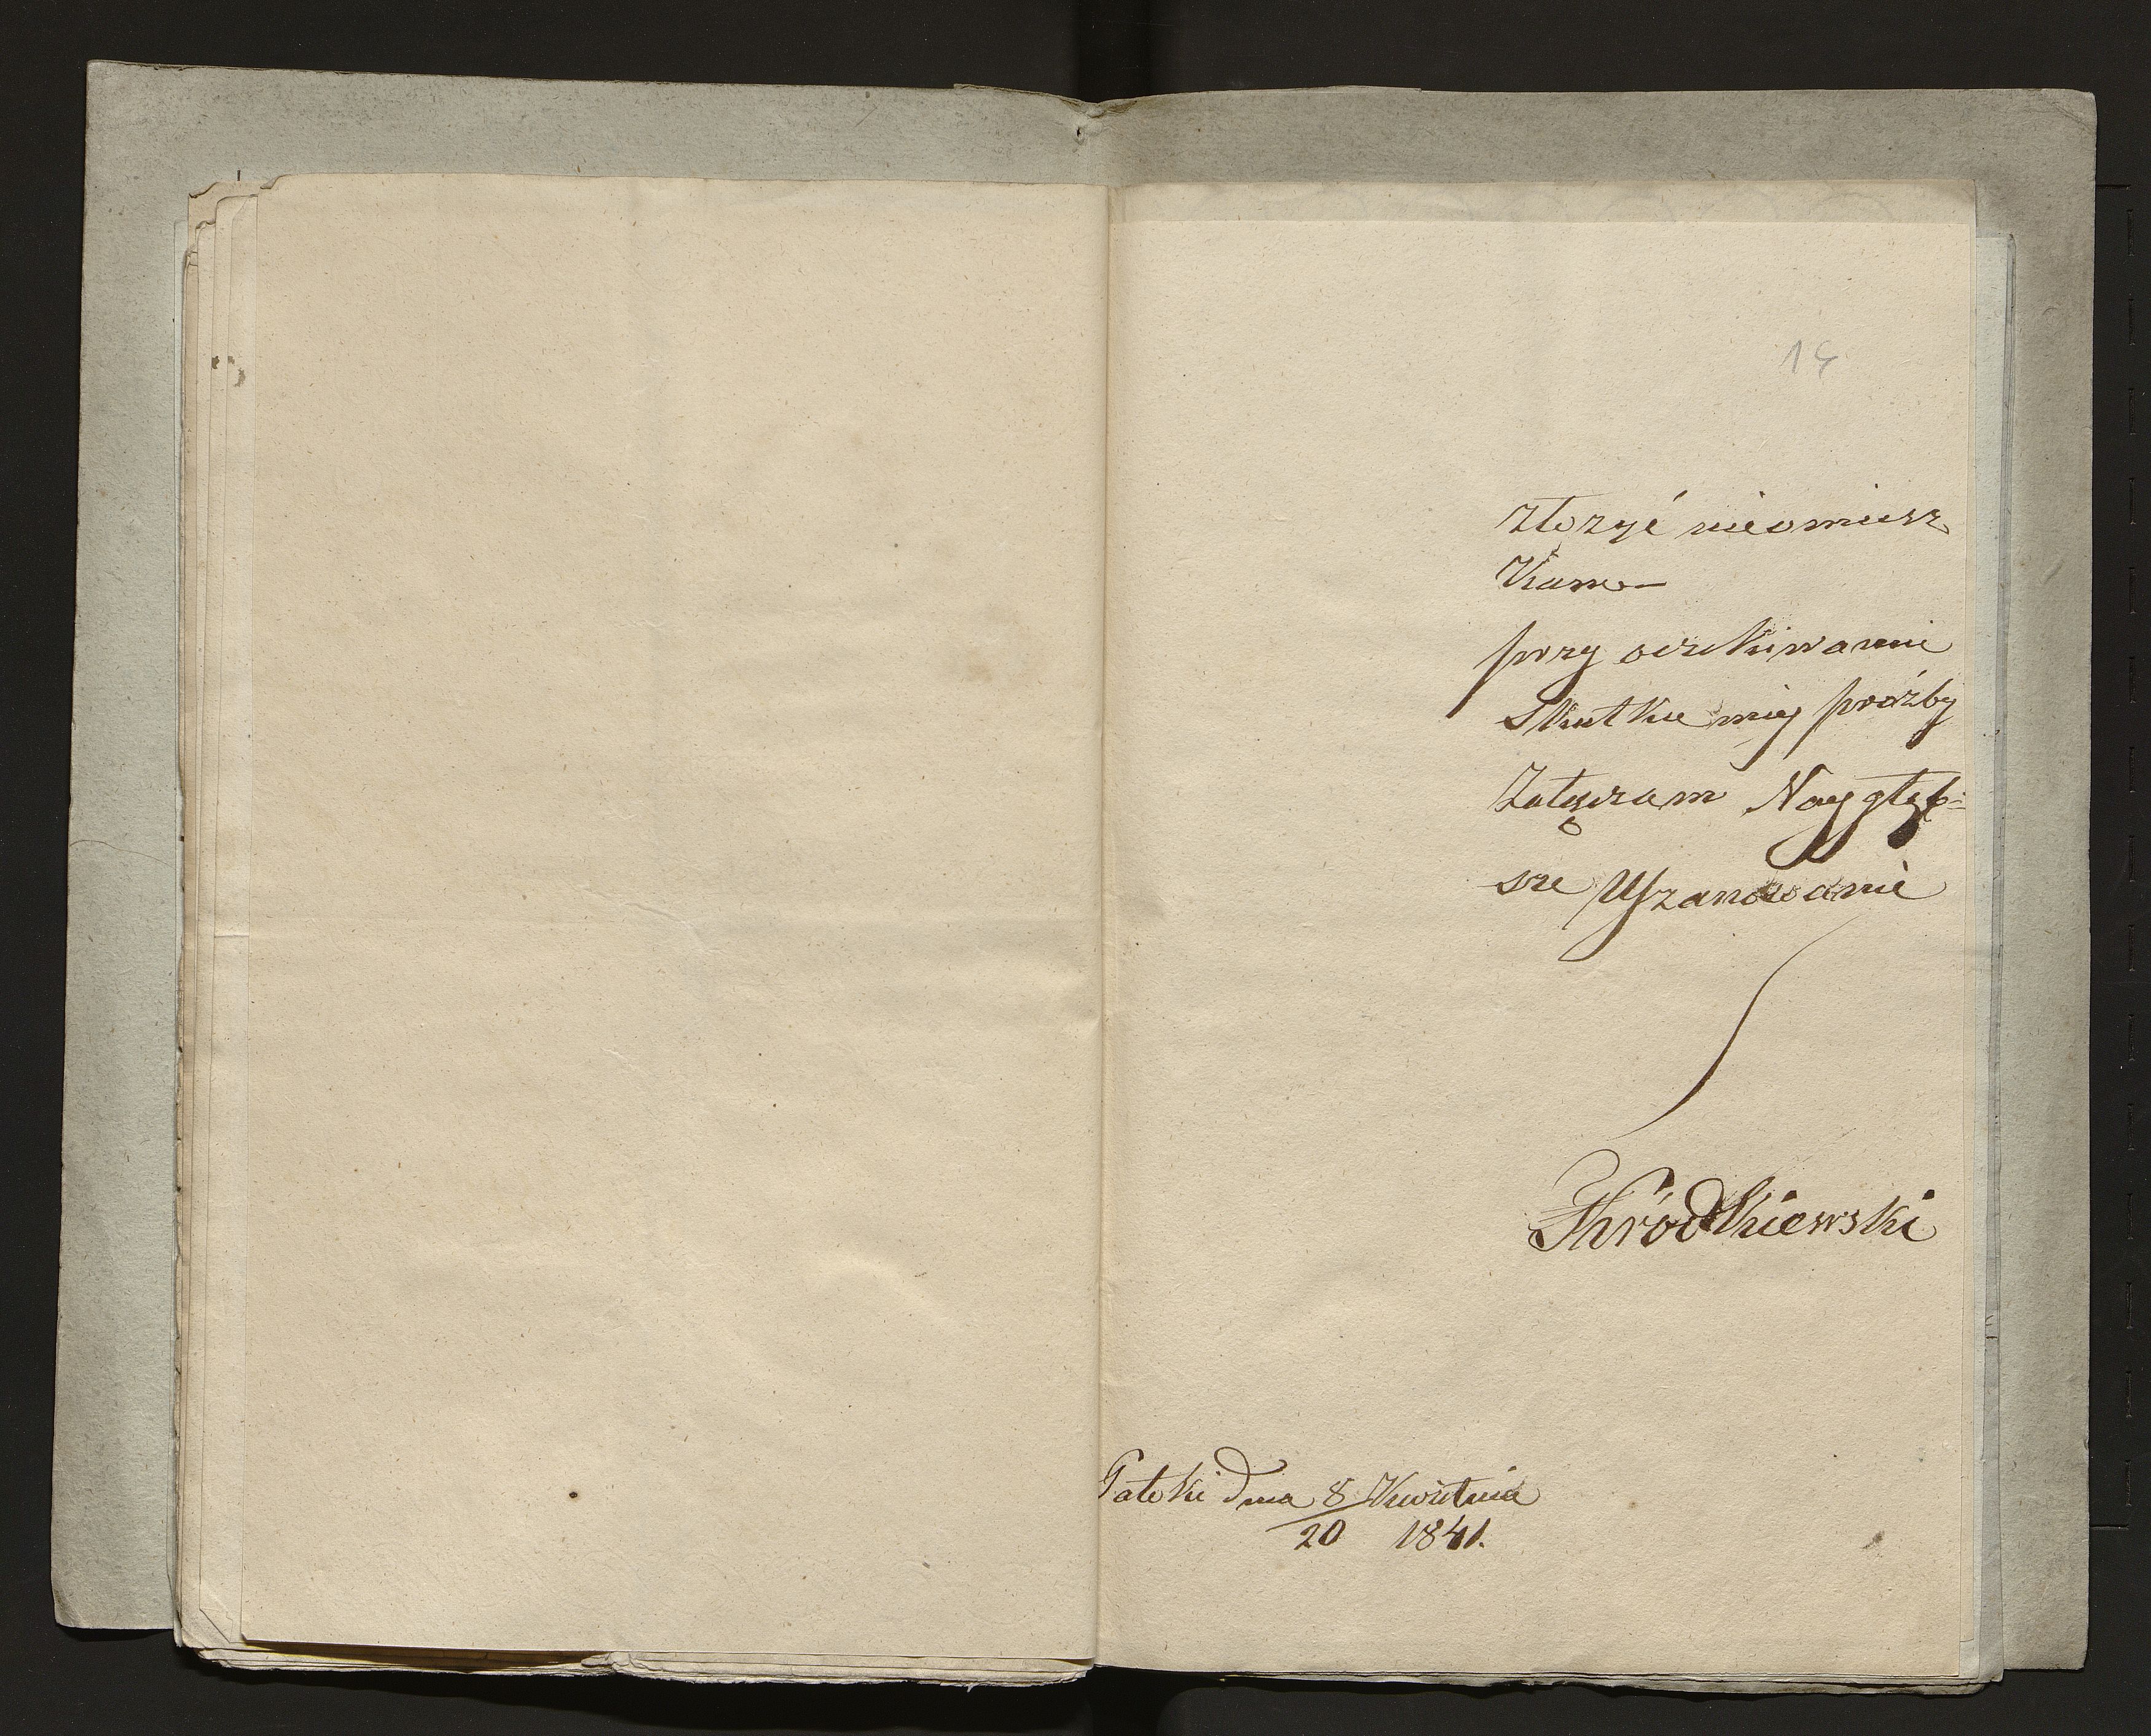 14
złozyć nieomiesz
kam—
przy oczekiwaniu
Skutku mey prożby
Załączam Naygłęb=
sze Uszanowanie
Skródkiewski
dnia 8/20 Kwietnia
1841.